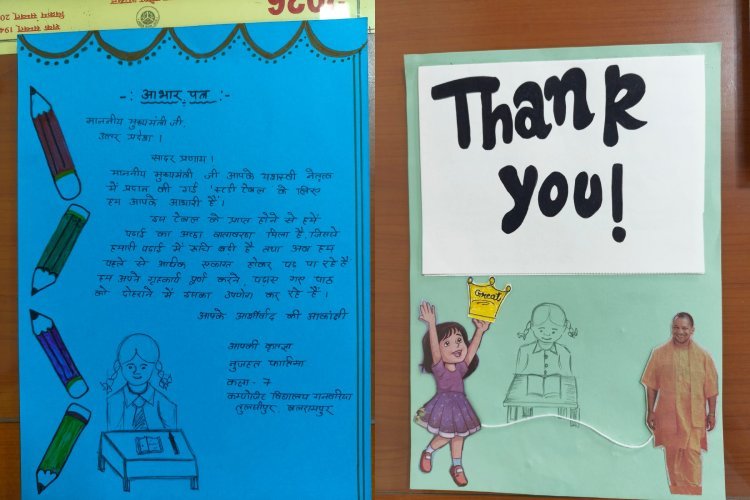 2026
-: आभार पत्र :-
माननीय मुख्यमंत्री जी,
उत्तर प्रदेश ।
सादर प्रणाम ।
माननीय मुख्यमंत्री जी आपके यशस्वी नेतृत्व
में प्रदान की गई 'स्टडी टेबल के लिए
हम आपके आभारी हैं'।
इस टेबल को प्राप्त होने से हमें
पढ़ाई का अच्छा वातावरण मिला है जिससे
हमारी पढ़ाई में रूचि बढ़ी है तथा अब हम
पहले से अधिक एकाग्र होकर पढ़ पा रहे हैं
हम अपने गृहकार्य पूर्ण करने, पढ़ाए गए पाठ
को दोहराने में इसका उपयोग कर रहे हैं ।
आपके आर्शीवाद की आकांक्षी
आपकी कृतज्ञ
नुजहत फातिमा
कक्षा - 7
कम्पोजिट विद्यालय गनवरिया
तुलसीपुर बलरामपुर
Thank
you!
Great